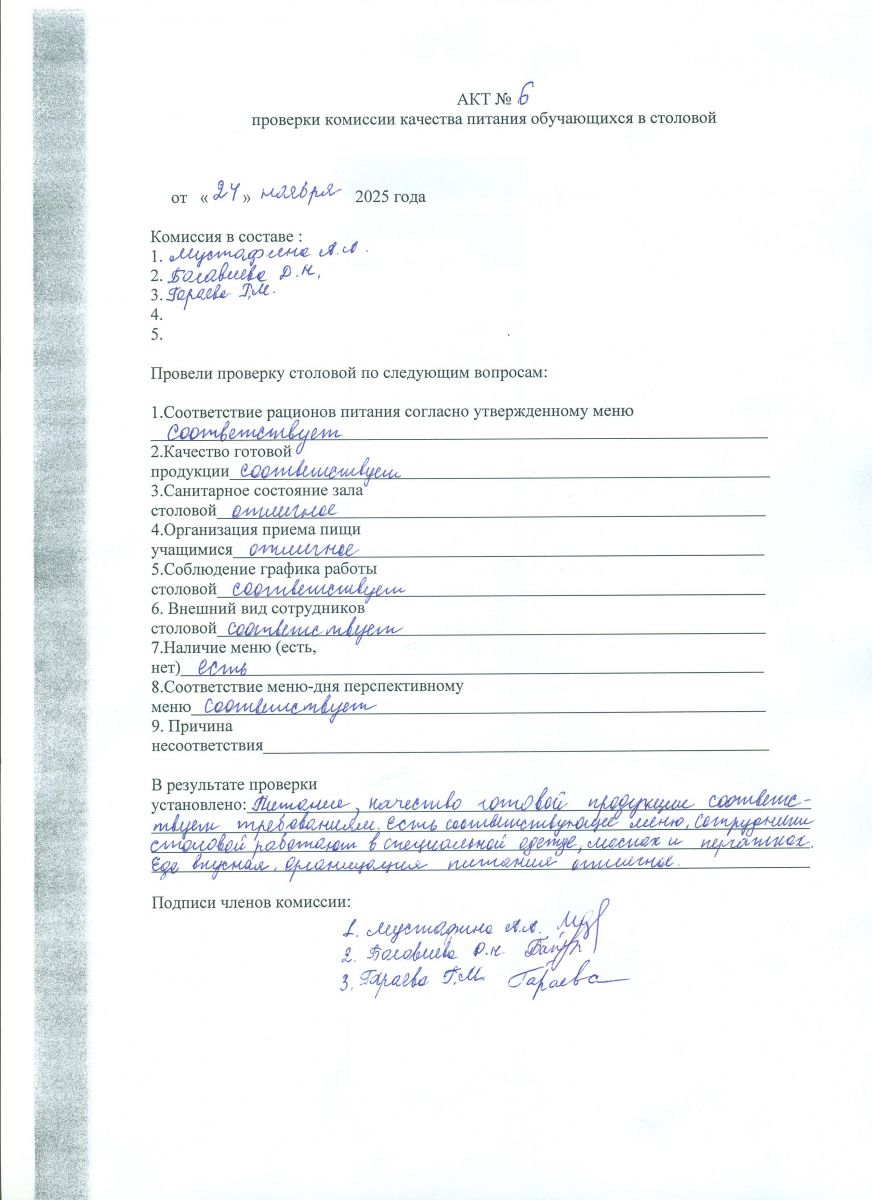 АКТ № 6
проверки комиссии качества питания обучающихся в столовой
от « 24 » ноября 2025 года
Комиссия в составе :
1. Мустафина А.А.
2. Богавиева Д.Н.
3. Гараева Г.М.
4.
5.
Провели проверку столовой по следующим вопросам:
1.Соответствие рационов питания согласно утвержденному меню
Соответствует
2.Качество готовой
продукции соответствует
3.Санитарное состояние зала
столовой отличное
4.Организация приема пищи
учащимися отличное
5.Соблюдение графика работы
столовой соответствует
6. Внешний вид сотрудников
столовой соответствует
7.Наличие меню (есть,
нет) есть
8.Соответствие меню-дня перспективному
меню соответствует
9. Причина
несоответствия
В результате проверки
установлено: Питание, качество готовой продукции соответс-
твует требованиям. Есть соответствующее меню, сотрудники
столовой работают в специальной одежде, масках и перчатках.
Еда вкусная. Организация питания отличное.
Подписи членов комиссии:
1. Мустафина А.А.
2. Богавиева Д.Н.
3. Гараева Г.М. Гараева